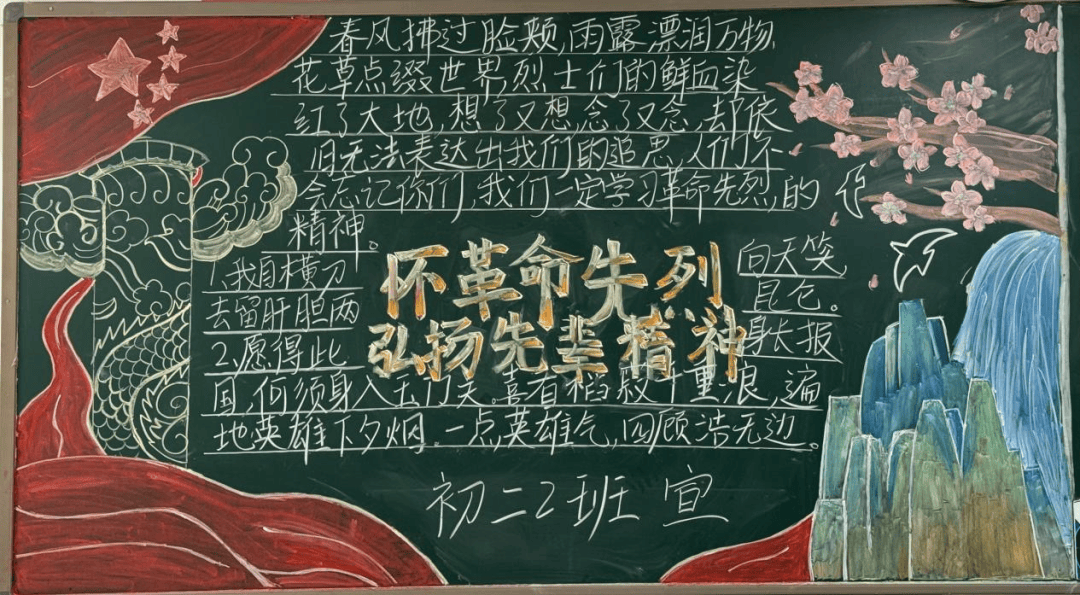 春风拂过脸颊,雨露漂润万物,
花草点缀世界烈士们的鲜血染
红了大地,想了又想,念了又念,却依
旧无法表达出我们的追思,人们不
会忘记你们,我们一定学习革命先烈,的
精神。
怀革命先列
弘扬先辈精神
1.我自横刀 向天笑
去留肝胆两 昆仑。
2.愿得此 身长报
国,何须身入玉门关。喜看稻菽千重浪,遍
地英雄下夕烟。一点英雄气,四顾浩无边。
初二2班 宣